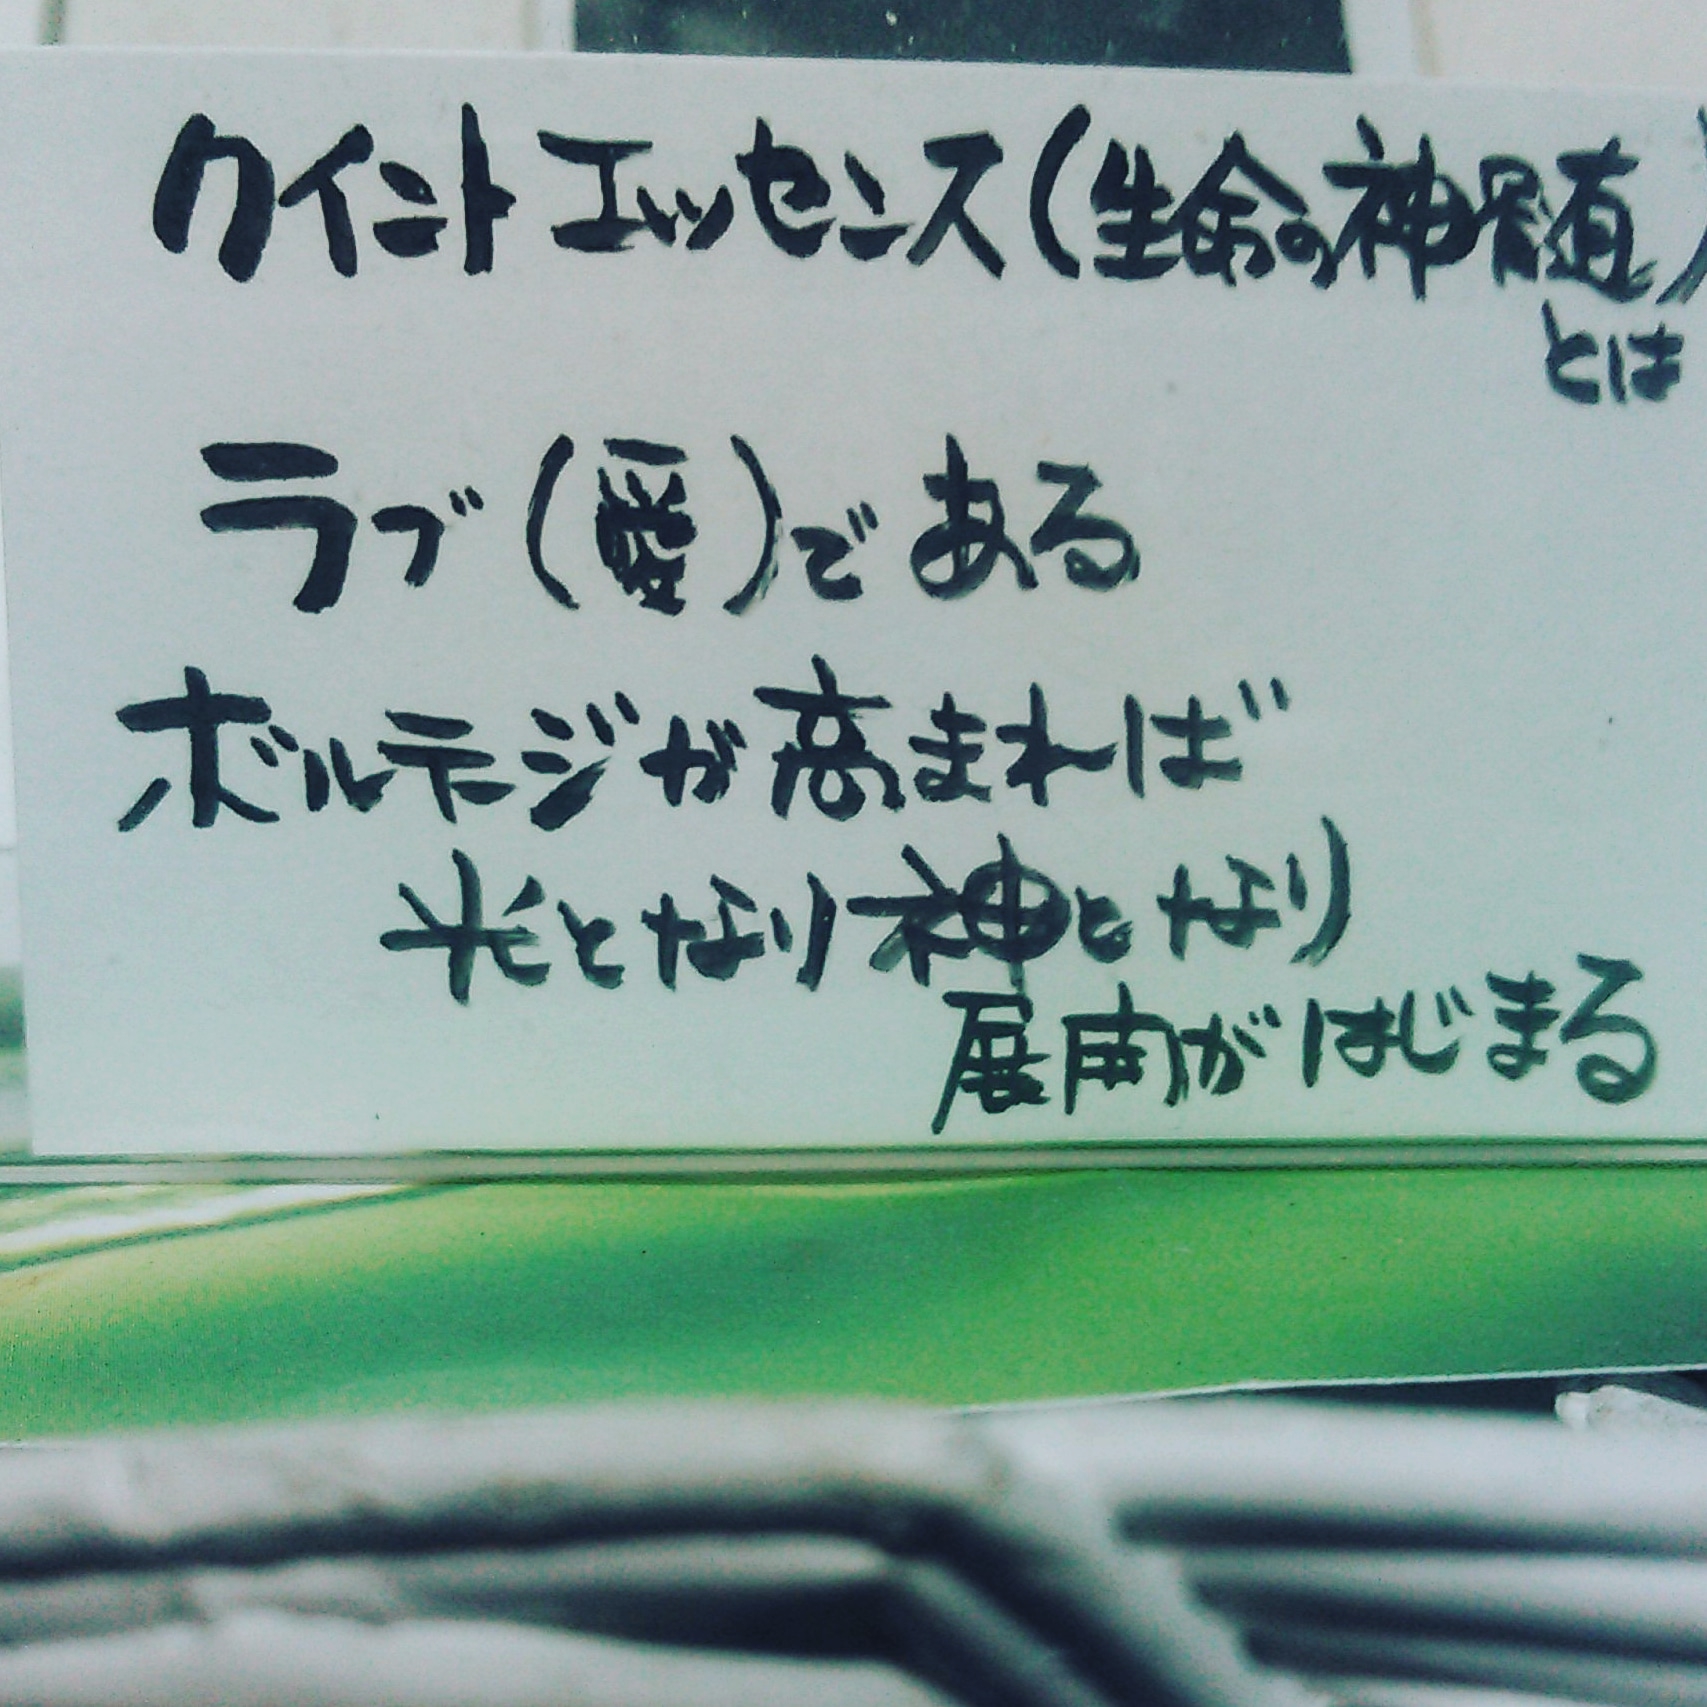 クイントエッセンス(生命の神髄)
とは
ラブ(愛)である
ボルテージが高まれば
光となり神となり
展開がはじまる